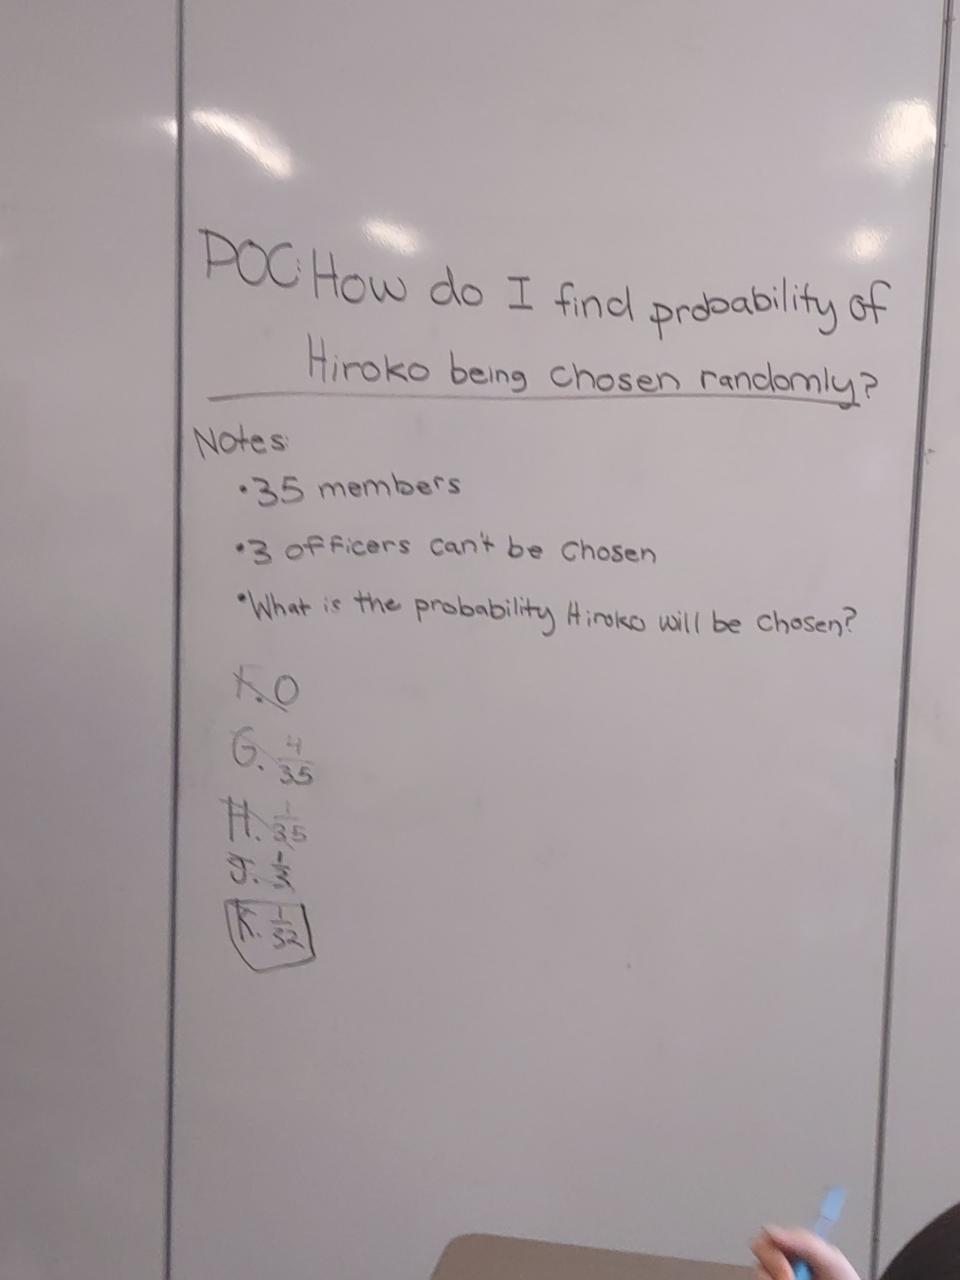 POC: How do I find probability of
Hiroko being chosen randomly?
Notes:
• 35 members
• 3 officers can't be chosen
• What is the probability Hiroko will be chosen?
F. 0
G. 4/35
H. 1/35
J. 1/3
K. 1/32